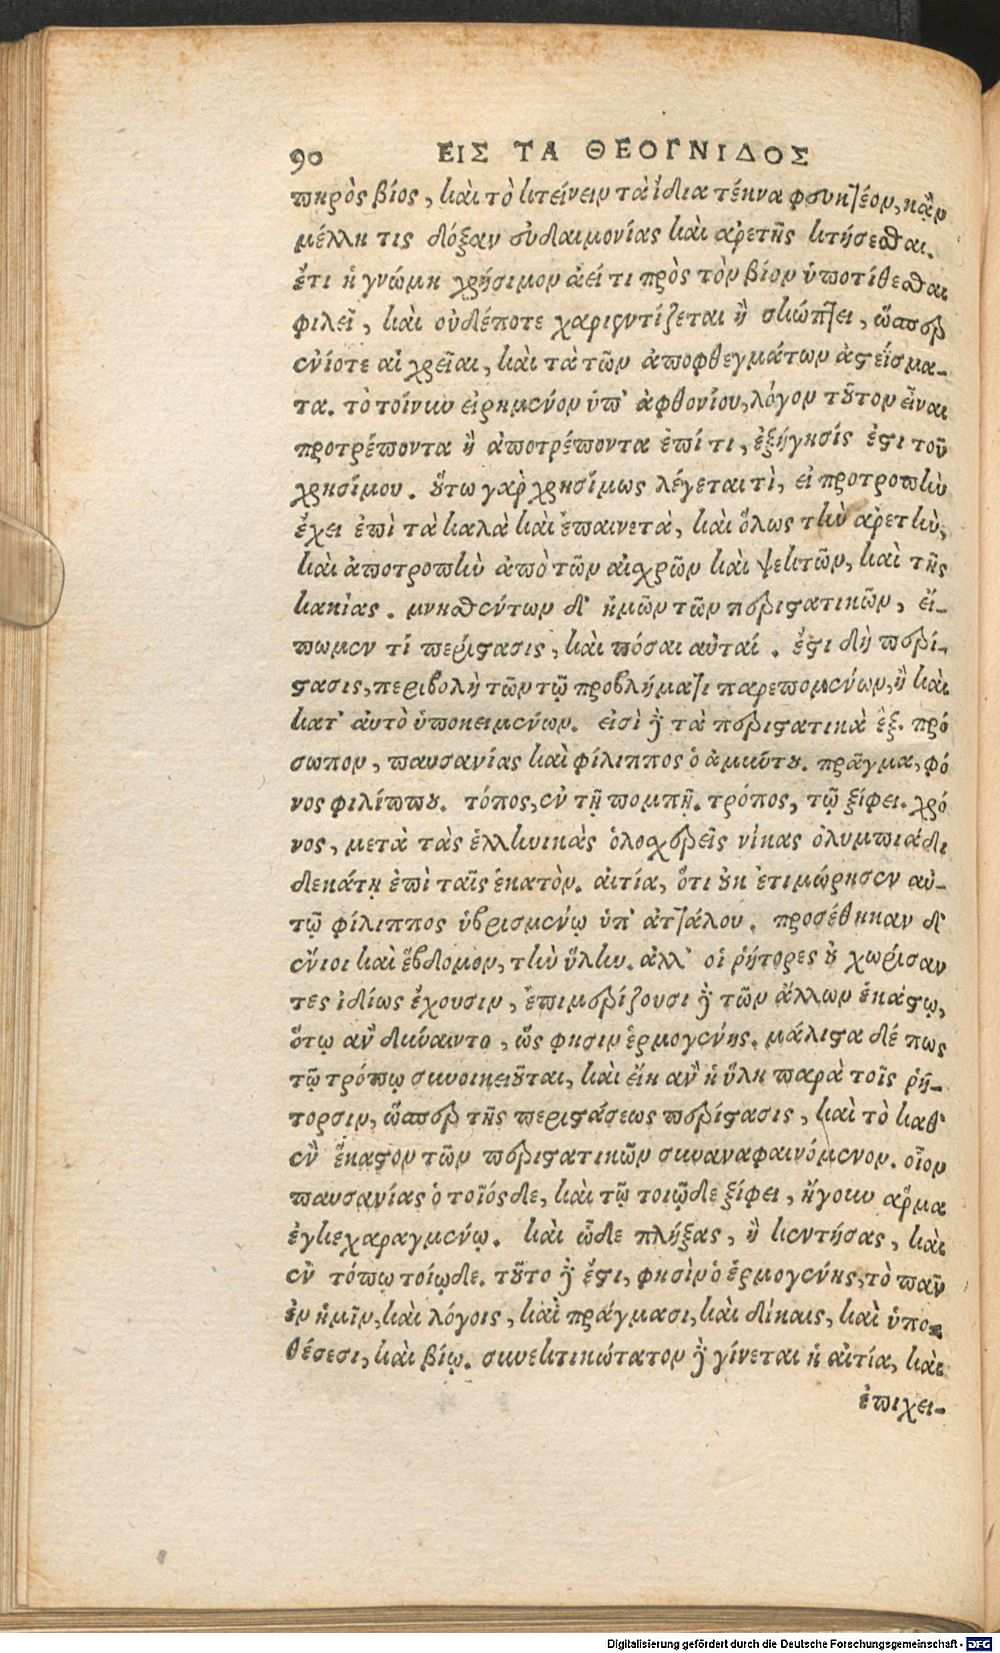 90 ΕΙΣ ΤΑ ΘΕΟΓΝΙΔΟΣ
πικρὸς βίος, καὶ τὸ κτείνειν τὰ ἴδια τέκνα φευκτέον, κἂν
μέλλῃ τις δόξαν εὐδαιμονίας καὶ ἀρετῆς κτήσεσθαι.
ἔτι ἡ γνώμη χρήσιμον ἀεί τι πρὸς τὸν βίον ὑποτίθεσθαι
φιλεῖ, καὶ οὐδέποτε χαριεντίζεται ἢ σκώπτει, ὥσπερ
ἐνίοτε αἱ χρεῖαι, καὶ τὰ τῶν ἀποφθεγμάτων ἀστείσμα-
τα. τὸ τοίνυν εἰρημένον ὑπ' ἀφθονίου, λόγον τοῦτον εἶναι
προτρέποντα ἢ ἀποτρέποντα ἐπί τι, ἐξήγησίς ἐστι τοῦ
χρησίμου. οὕτω γὰρ χρησίμως λέγεται τὶ, εἰ προτροπὴν
ἔχει ἐπὶ τὰ καλὰ καὶ ἐπαινετὰ, καὶ ὅλως τὴν ἀρετὴν,
καὶ ἀποτροπὴν ἀπὸ τῶν αἰσχρῶν καὶ ψεκτῶν, καὶ τῆς
κακίας. μνησθέντων δ' ἡμῶν τῶν περιστατικῶν, εἴ-
πωμεν τί περίστασις, καὶ πόσαι αὐταί. ἔστι δὴ περί-
στασις, περιβολὴ τῶν τῷ προβλήματι παρεπομένων, ἢ καὶ
κατ' αὐτὸ ὑποκειμένων. εἰσὶ δὲ τὰ περιστατικὰ ἓξ. πρό
σωπον, παυσανίας καὶ φίλιππος ὁ ἀμύντου. πρᾶγμα, φό
νος φιλίππου. τόπος, ἐν τῇ πομπῇ. τρόπος, τῷ ξίφει. χρό
νος, μετὰ τὰς ἑλληνικὰς ὁλοσχερεῖς νίκας ὀλυμπιάδι
δεκάτῃ ἐπὶ ταῖς ἑκατὸν. αἰτία, ὅτι οὐκ ἐτιμώρησεν αὐ-
τῷ φίλιππος ὑβρισμένῳ ὑπ' ἀττάλου. προσέθηκαν δ'
ἔνιοι καὶ ἕβδομον, τὴν ὕλην. ἀλλ' οἱ ῥήτορες οὐ χωρίσαν
τες ἰδίως ἔχουσιν, ἐπιμερίζουσι δὲ τῶν ἄλλων ἑκάστῳ,
ὅτῳ ἂν δύναιντο, ὥς φησιν ἑρμογένης. μάλιστα δέ πως
τῷ τρόπῳ συνοικειοῦται, καὶ εἴη ἂν ἡ ὕλη παρὰ τοῖς ῥή-
τορσιν, ὥσπερ τῆς περιστάσεως περίστασις, καὶ τὸ καθ'
ἓν ἕκαστον τῶν περιστατικῶν συναναφαινόμενον. οἷον
παυσανίας ὁ τοῖόσδε, καὶ τῷ τοιῷδε ξίφει, ἤγουν ἅρμα
ἐγκεχαραγμένῳ. καὶ ὧδε πλήξας, ἢ κεντήσας, καὶ
ἐν τόπῳ τοίῳδε. τοῦτο δὲ ἔστι, φησὶν ὁ ἑρμογένης, τὸ πᾶν
ἐν ἡμῖν, καὶ λόγοις, καὶ πράγμασι, καὶ δίκαις, καὶ ὑπο-
θέσεσι, καὶ βίῳ. συνεκτικώτατον δὲ γίνεται ἡ αἰτία, καὶ
ἐπιχει-
Digitalisierung gefördert durch die Deutsche Forschungsgemeinschaft - DFG